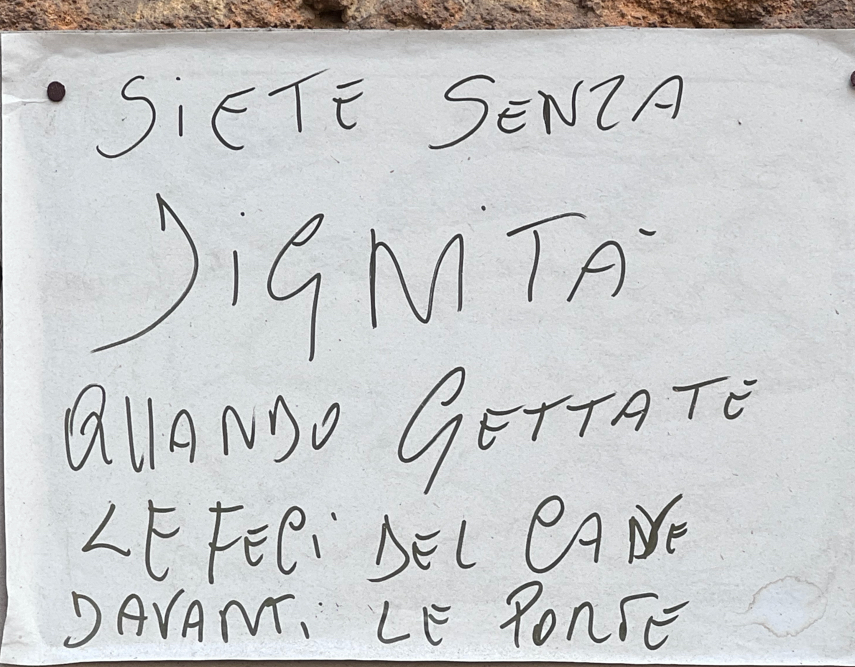 SiETE SENZA
DiGNiTÀ
QUANDO GETTATE
LE FECi DEL CANE
DAVANTi LE PORTE